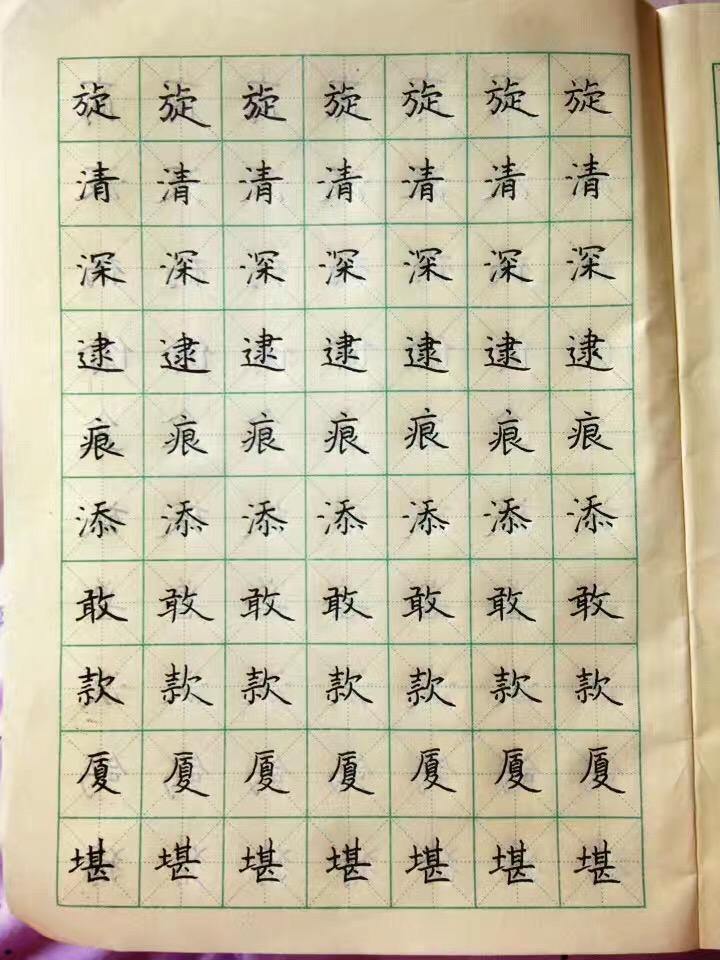 旋旋旋旋旋旋旋
清清清清清清清
深深深深深深深
逮逮逮逮逮逮逮
痕痕痕痕痕痕痕
添添添添添添添
敢敢敢敢敢敢敢
款款款款款款款
厦厦厦厦厦厦厦
堪堪堪堪堪堪堪